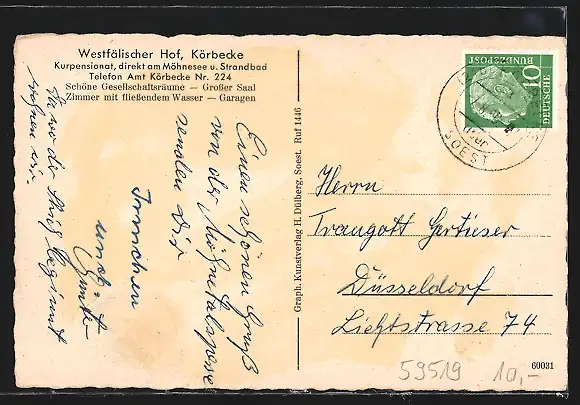 Westfälischer Hof, Körbecke
Kurpensionat, direkt am Möhnesee u. Strandbad
Telefon Amt Körbecke Nr. 224
Schöne Gesellschaftsräume — Großer Saal
Zimmer mit fließendem Wasser — Garagen
Einen schönen Gruß
von der Möhnetalsperre
senden Dir
und
Da wo der Pfeil beginnt
wohnen wir.
Graph. Kunstverlag H. Dülberg, Soest. Ruf 1446
DEUTSCHE
BUNDESPOST
10
SOEST
Herrn
Traugott Gertieser
Düsseldorf
Lichtstrasse 74
60031
59519 10,-